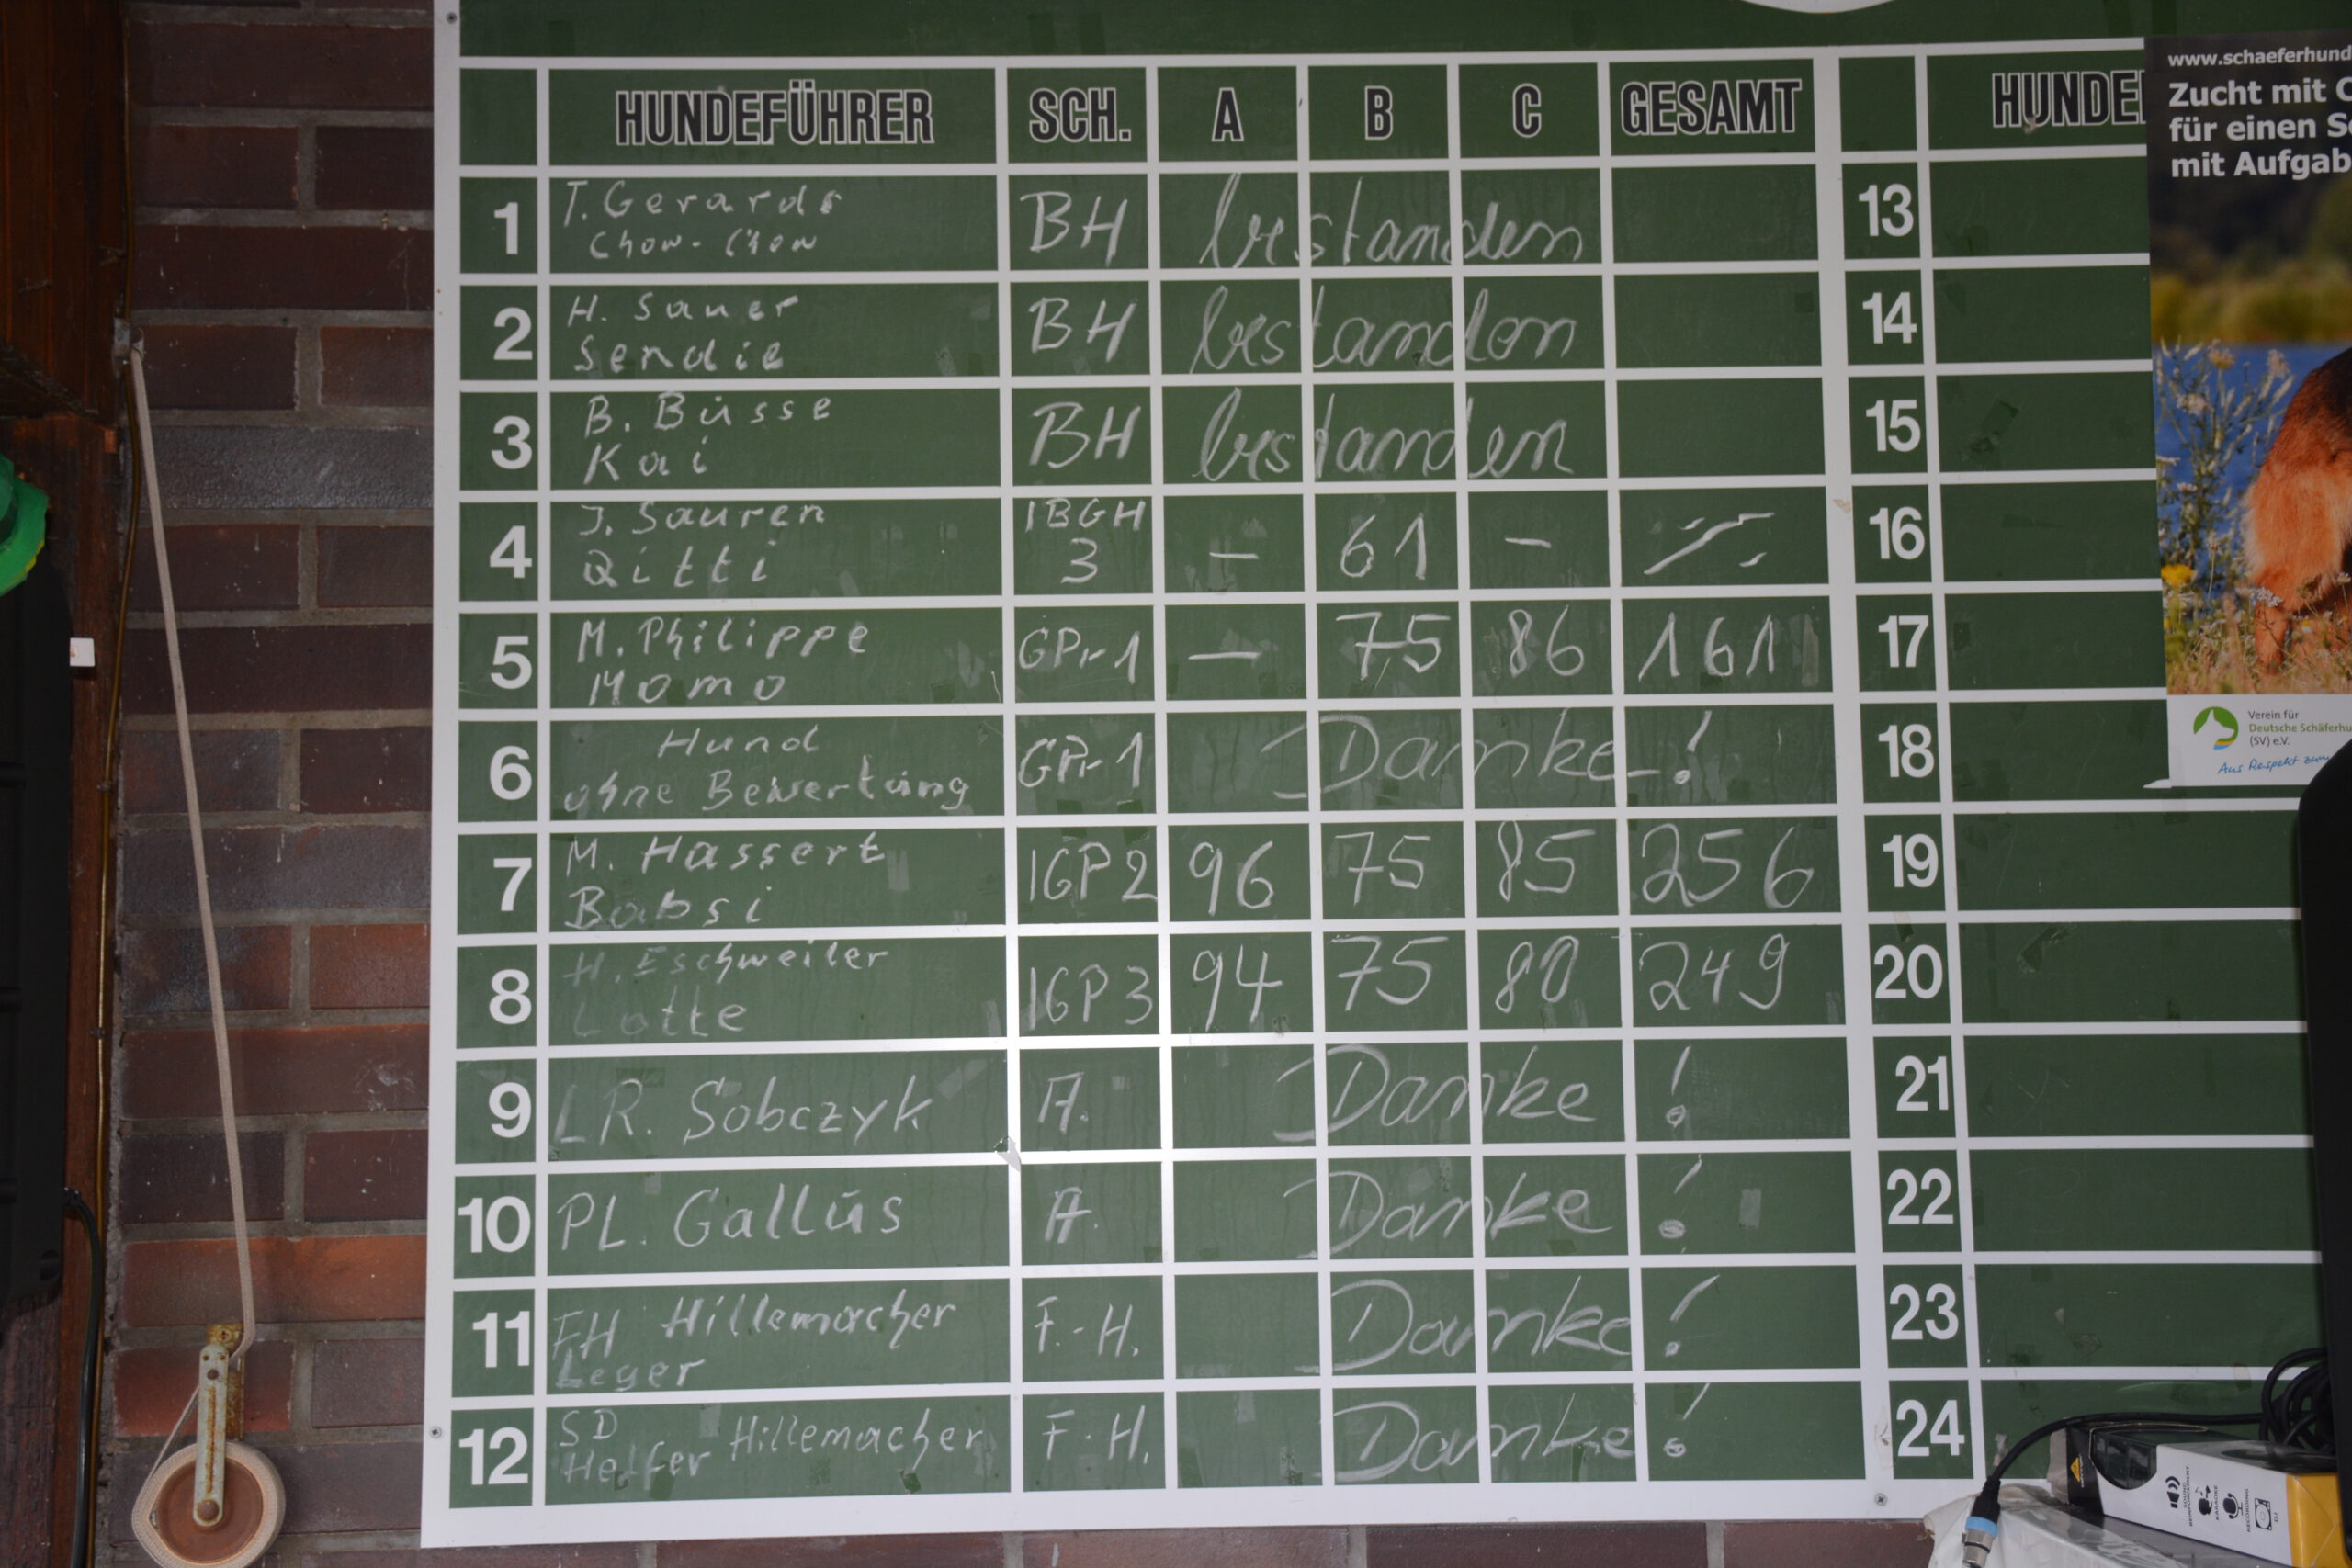 HUNDEFÜHRER SCH. A B C GESAMT
1 T. Gerards BH bestanden
Chow-Chow
2 H. Sauer BH bestanden
Sendie
3 B. Büsse BH bestanden
Kai
4 J. Sauren IBGH 3 - 61 -
Qitti
5 M. Philippe GPr-1 - 75 86 161
Momo
6 Hund GPr-1 Danke!
ohne Bewertung
7 M. Hassert IGP 2 96 75 85 256
Babsi
8 H. Eschweiler IGP 3 94 75 80 249
Lotte
9 LR. Sobczyk A. Danke!
10 PL. Gallus A. Danke!
11 FH Hillemacher F.-H. Danke!
Leger
12 SD Hillemacher F.H. Danke!
Helfer
13
14
15
16
17
18
19
20
21
22
23
24
www.schaeferhund
Zucht mit
für einen
mit Aufgab
Verein für
Deutsche Schäferhu
(SV) e.V.
Aus Respekt zum